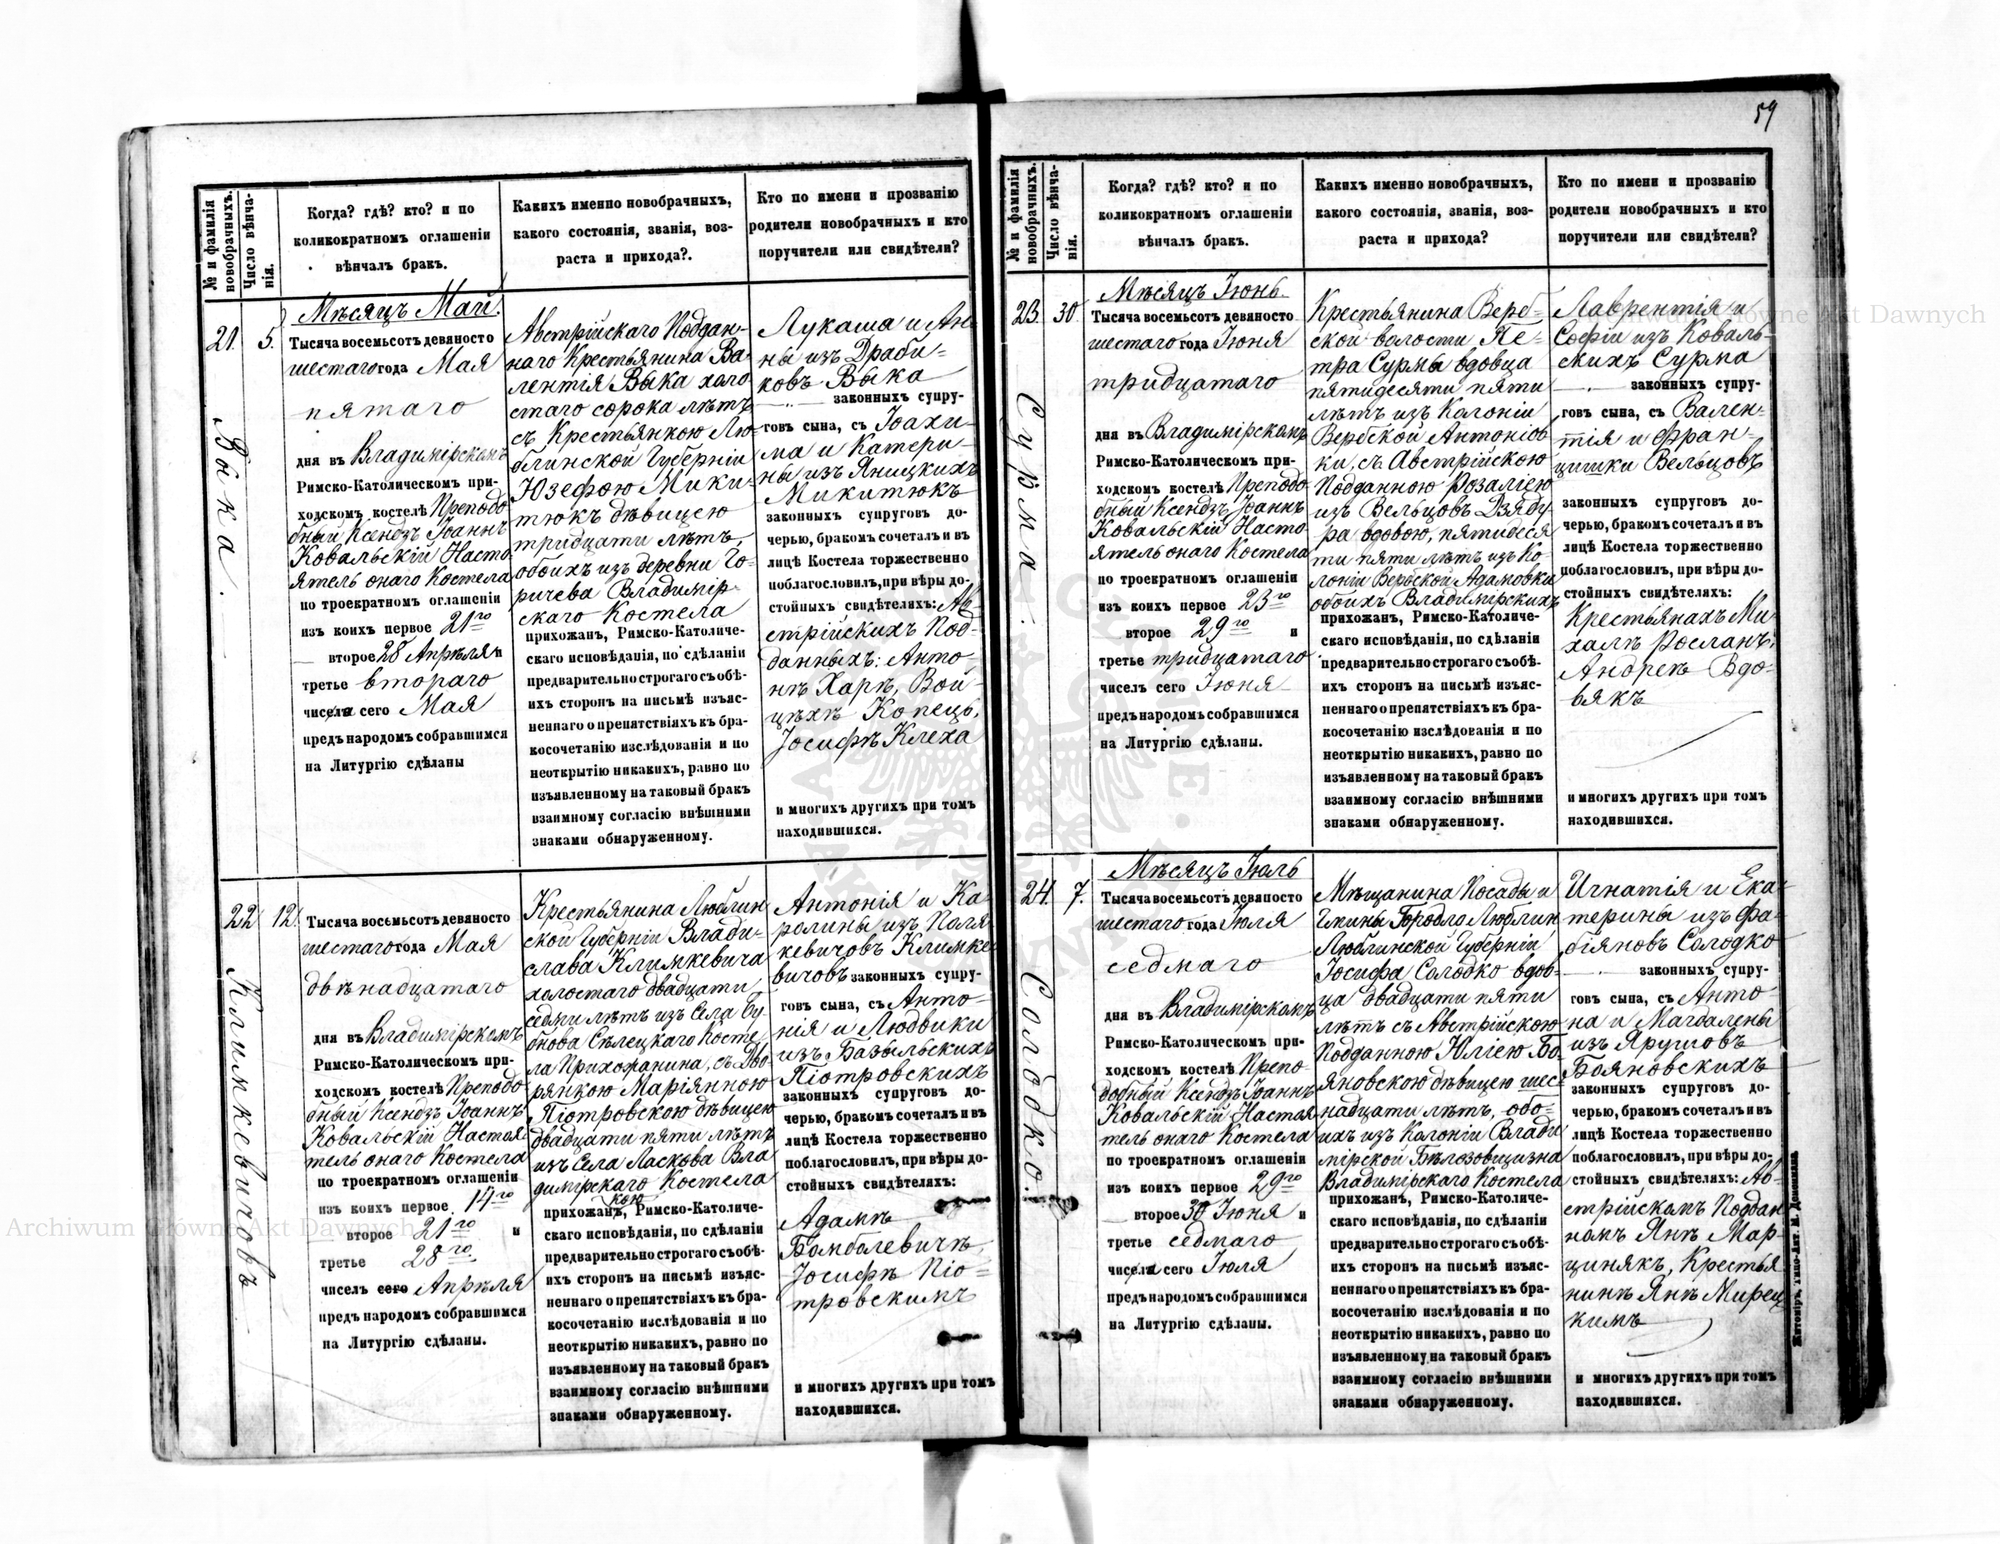 59
№ и фамилія новобрачныхъ.
Число вѣнча-
нія.
Когда? гдѣ? кто? и по
коликократномъ оглашеніи
вѣнчалъ бракъ.
Какихъ именно новобрачныхъ,
какого состоянія, званія, воз-
раста и прихода?.
Кто по имени и прозванію
родители новобрачныхъ и кто
поручители или свидѣтели?
21.
Выка.
5.
Мѣсяцъ Май.
Тысяча восемьсотъ девяносто
шестаго года Мая
пятаго
дня въ Владимірскомъ
Римско-Католическомъ при-
ходскомъ костелѣ Преподо
бный Ксендзъ Іоаннъ
Ковальскій Насто
ятель онаго Костела
по троекратномъ оглашеніи
изъ коихъ первое 21го
второе 28 Апрѣля и
третье втораго
чиселъ сего Мая
предъ народомъ собравшимся
на Литургію сдѣланы
Австрійскаго Поддан-
наго Крестьянина Ва
лентія Выка холо
стаго сорока лѣтъ
съ Крестьянкою Лю-
блинской Губерніи
Юзефою Мики-
тюкъ дѣвицею
тридцати лѣтъ,
обоихъ изъ деревни Го-
ричева Владимір-
скаго Костела
прихожанъ, Римско-Католиче-
скаго исповѣданія, по сдѣланіи
предварительно строгаго съ обѣ-
ихъ сторонъ на письмѣ изъяс-
неннаго о препятствіяхъ къ бра-
косочетанію изслѣдованія и по
неоткрытію никакихъ, равно по
изъявленному на таковый бракъ
взаимному согласію внѣшними
знаками обнаруженному.
Лукаша и Ан-
ны изъ Драби-
ковъ Выка
законныхъ супру-
говъ сына, съ Іоахи-
ма и Катери-
ны изъ Яницкихъ
Микитюкъ
законныхъ супруговъ до-
черью, бракомъ сочеталъ и въ
лицѣ Костела торжественно
поблагословилъ, при вѣры до-
стойныхъ свидѣтеляхъ: Ав-
стрійскихъ Под-
данныхъ: Анто-
нѣ Харѣ, Вой-
цѣхѣ Копецъ,
Іосифѣ Клеха
и многихъ другихъ при томъ
находившихся.
22
Климкевичовъ
12.
Тысяча восемьсотъ девяносто
шестаго года Мая
двѣнадцатаго
дня въ Владимірскомъ
Римско-Католическомъ при-
ходскомъ костелѣ Преподо
бный Ксендзъ Іоаннъ
Ковальскій Настоя
тель онаго Костела
по троекратномъ оглашеніи
изъ коихъ первое 14го
второе 21го и
третье 28го
чиселъ сего Апрѣля
предъ народомъ собравшимся
на Литургію сдѣланы.
Крестьянина Люблин
ской Губерніи Влади-
слава Климкевича
холостаго двадцати
седми лѣтъ изъ Села Бу
бнова Сѣлецкаго Косте
ла Прихожанина, съ Дво
рянкою Маріянною
Піотровскою дѣвицею
двадцати пяти лѣтъ
изъ Села Ласкова Вла
димірскаго Костела
кою
прихожанъ, Римско-Католиче-
скаго исповѣданія, по сдѣланіи
предварительно строгаго съ обѣ-
ихъ сторонъ на письмѣ изъяс-
неннаго о препятствіяхъ къ бра-
косочетанію изслѣдованія и по
неоткрытію никакихъ, равно по
изъявленному на таковый бракъ
взаимному согласію внѣшними
знаками обнаруженному.
Антонія и Ка
ролины изъ Поля
кевичовъ Климке
вичовъ законныхъ супру-
говъ сына, съ Анто-
нія и Людвики
изъ Базыльскихъ
Піотровскихъ
законныхъ супруговъ до-
черью, бракомъ сочеталъ и въ
лицѣ Костела торжественно
поблагословилъ, при вѣры до-
стойныхъ свидѣтеляхъ:
Адамѣ
Бомбалевичѣ,
Іосифѣ Піо-
тровскимъ
и многихъ другихъ при томъ
находившихся.
№ и фамилія новобрачныхъ.
Число вѣнча-
нія.
Когда? гдѣ? кто? и по
коликократномъ оглашеніи
вѣнчалъ бракъ.
Какихъ именно новобрачныхъ,
какого состоянія, званія, воз-
раста и прихода?
Кто по имени и прозванію
родители новобрачныхъ и кто
поручители или свидѣтели?
23.
Сурма.
30
Мѣсяцъ Іюнь.
Тысяча восемьсотъ девяносто
шестаго года Іюня
тридцатаго
дня въ Владимірскомъ
Римско-Католическомъ при-
ходскомъ костелѣ Преподо
бный Ксендзъ Іоаннъ
Ковальскій Насто
ятель онаго Костела
по троекратномъ оглашеніи
изъ коихъ первое 23го
второе 29го и
третье тридцатаго
чиселъ сего Іюня
предъ народомъ собравшимся
на Литургію сдѣланы.
Крестьянина Верб-
ской волости Пе-
тра Сурмы вдовца
пятидесяти пяти
лѣтъ изъ Колоніи
Вербской Антонов
ки, съ Австрійскою
Подданною Розаліею
изъ Вельцовъ Дзяду
ра вдовою, пятидеся
ти пяти лѣтъ изъ Ко
лоніи Вербской Адамовки
обоихъ Владимірскихъ
прихожанъ, Римско-Католиче-
скаго исповѣданія, по сдѣланіи
предварительно строгаго съ обѣ-
ихъ сторонъ на письмѣ изъяс-
неннаго о препятствіяхъ къ бра-
косочетанію изслѣдованія и по
неоткрытію никакихъ, равно по
изъявленному на таковый бракъ
взаимному согласію внѣшними
знаками обнаруженному.
Лаврентія и
Софіи изъ Коваль-
скихъ Сурма
законныхъ супру-
говъ сына, съ Вален-
тія и Фран-
цишки Вельцовъ
законныхъ супруговъ до-
черью, бракомъ сочеталъ и въ
лицѣ Костела торжественно
поблагословилъ, при вѣры до-
стойныхъ свидѣтеляхъ:
Крестьянахъ Ми-
халѣ Росланъ,
Андреѣ Вдо-
вякъ
и многихъ другихъ при томъ
находившихся.
24.
Солодко.
7.
Мѣсяцъ Іюль
Тысяча восемьсотъ девяносто
шестаго года Іюля
седмаго
дня въ Владимірскомъ
Римско-Католическомъ при-
ходскомъ костелѣ Препо-
добный Ксендзъ Іоаннъ
Ковальскій Настоя
тель онаго Костела
по троекратномъ оглашеніи
изъ коихъ первое 29го
второе 30 Іюня и
третье седмаго
чиселъ сего Іюля
предъ народомъ собравшимся
на Литургію сдѣланы.
Мѣщанина Посады и
Гмины Городло Люблин
Люблинской Губерніи
Іосифа Солодко вдов-
ца двадцати пяти
лѣтъ съ Австрійскою
Подданною Юліею Бо
яновскою дѣвицею шест
надцати лѣтъ, обо-
ихъ изъ Колоніи Влади
мірской Бѣлозовщизна
Владимірскаго Костела
прихожанъ, Римско-Католиче-
скаго исповѣданія, по сдѣланіи
предварительно строгаго съ обѣ-
ихъ сторонъ на письмѣ изъяс-
неннаго о препятствіяхъ къ бра-
косочетанію изслѣдованія и по
неоткрытію никакихъ, равно по
изъявленному на таковый бракъ
взаимному согласію внѣшними
знаками обнаруженному.
Игнатія и Ека-
терины изъ Фа-
біяновъ Солодко
законныхъ супру-
говъ сына, съ Анто-
на и Магдалены
изъ Ярушовъ
Бояновскихъ
законныхъ супруговъ до-
черью, бракомъ сочеталъ и въ
лицѣ Костела торжественно
поблагословилъ, при вѣры до-
стойныхъ свидѣтеляхъ: Ав-
стрійскомъ Поддан
номъ Янѣ Мар-
цинякъ, Крестья
нинѣ Янѣ Мирец
кимъ
и многихъ другихъ при томъ
находившихся.
Житоміръ, типо-лит. М. Дененмана
Archiwum Główne Akt Dawnych
Archiwum Główne Akt Dawnych
ARCHIWUM GŁÓWNE AKT DAWNYCH